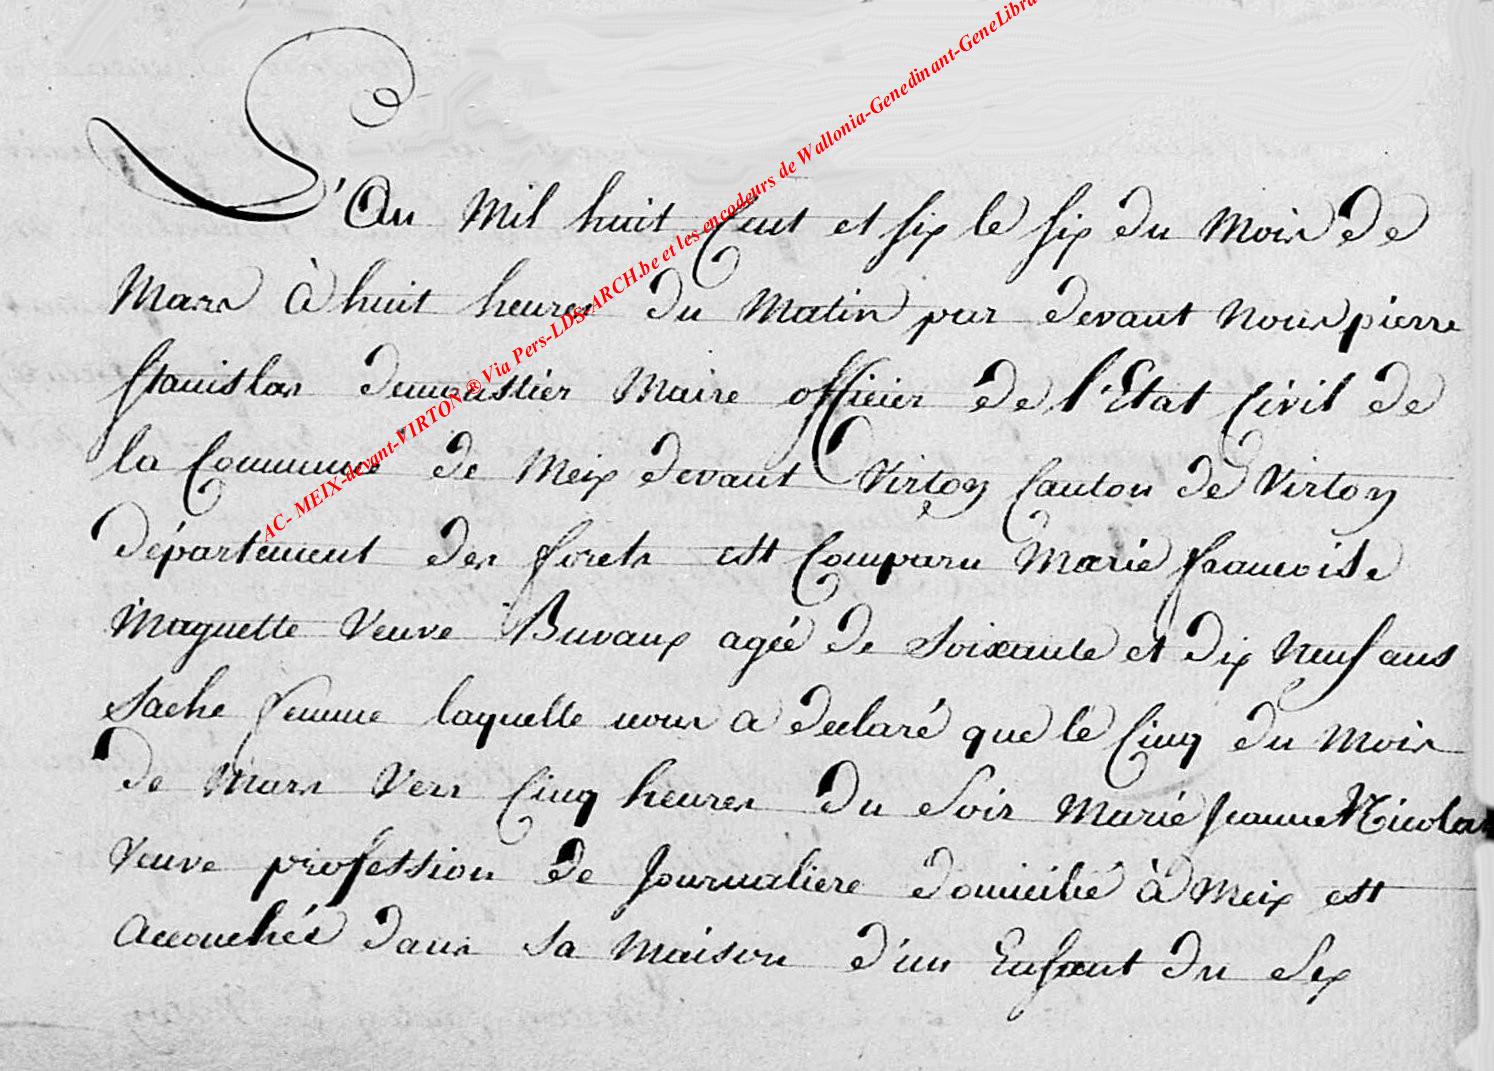 L'An Mil huit Cent et six le six du Mois de
Mars à huit heures du Matin par devant Nous pierre
stanislas demoustier Maire officier de l'Etat Civil de
la Commune de Meix devant Virton Canton de Virton
département des forets est Comparu Marie francoise
Maguette Veuve Buvaux agée de soixante et dix Neuf ans
sache femme laquelle nous a declaré que le Cinq du Mois
de Mars Vers Cinq heures du soir Marie Jeanne Nicolas
Veuve profession de Journaliere domicilié à Meix est
accouchée dans sa Maison d'un Enfant du sex
AC- MEIX-devant-VIRTON ® Via Pers-LDS-ARCH.be et les encodeurs de Wallonia-Genedinant-GeneLibra